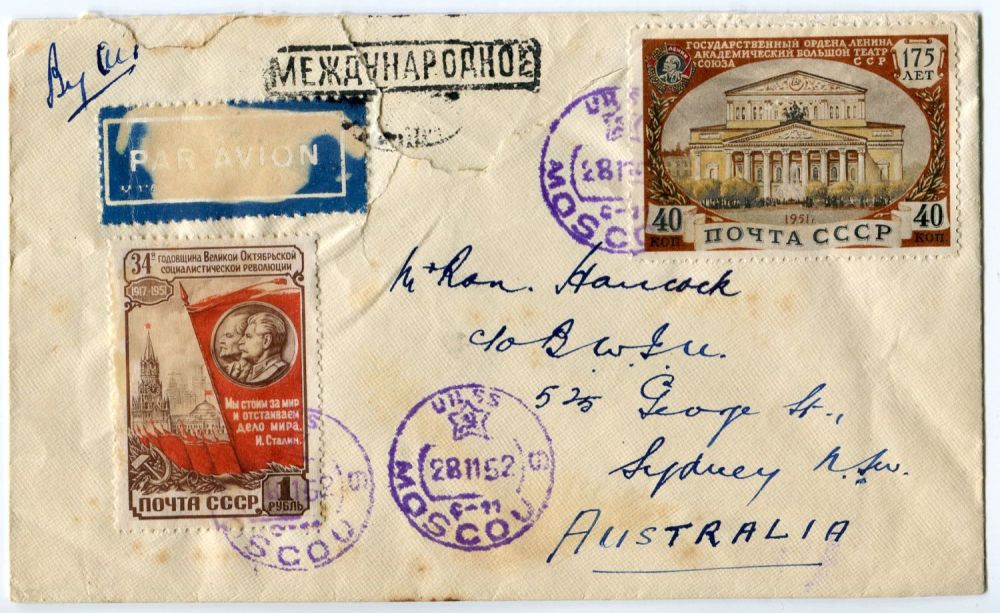 By Air
МЕЖДУНАРОДНОЕ
PAR AVION
ГОСУДАРСТВЕННЫЙ ОРДЕНА ЛЕНИНА
АКАДЕМИЧЕСКИЙ БОЛЬШОЙ ТЕАТР
СОЮЗА ССР
175
ЛЕТ
ЛЕНИН
1951г.
40
КОП
ПОЧТА СССР
40
КОП
MOSCOU
34я ГОДОВЩИНА ВЕЛИКОЙ ОКТЯБРЬСКОЙ
СОЦИАЛИСТИЧЕСКОЙ РЕВОЛЮЦИИ
1917-1951
Мы стоим за мир
и отстаиваем
дело мира.
И. Сталин.
ПОЧТА СССР
1
РУБЛЬ
MOSCOU
UR.SS
28 11 52
6
MOSCOU
Mr Ron. Hancock
c/o B.W.I.U.
525 George St.,
Sydney N.S.W.
AUSTRALIA